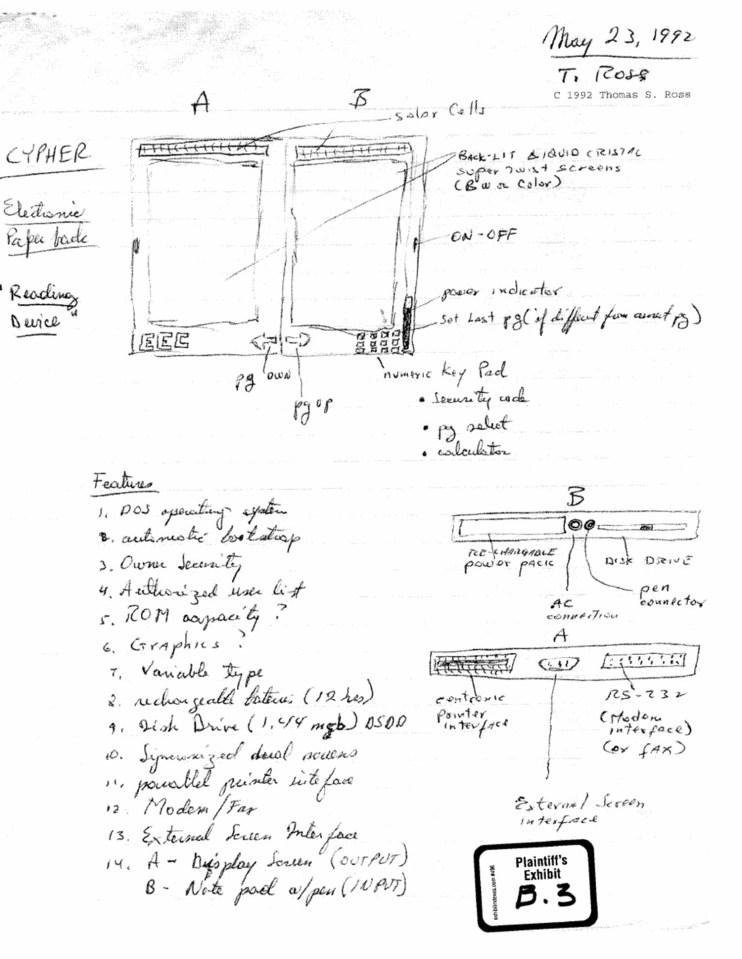 May 23, 1992
T. Ross
C 1992 Thomas S. Ross
A
B
Solar Cells
CYPHER
Electronic
Paper back
"Reading
Device"
BACK-LIT LIQUID CRISTAL
super Twist screens
(BW or Color)
ON-OFF
power indicator
Set Last pg (if different from current pg)
EEC
pg DWN
pg up
numeric Key Pad
• Security code
• pg select
• calculator
Features
1. DOS operating system
2. automatic bootstrap
3. Owner Security
4. Authorized user list
5. ROM capacity ?
6. Graphics ?
7. Variable type
8. rechargeable bateries (12 hrs)
9. Disk Drive (1.44 mgb) DSDD
10. Syncronized dual screens
11. parallel printer interface
12. Modem/Fax
13. External Screen Interface
14. A - Display Screen (OUTPUT)
B - Note pad w/pen (INPUT)
B
RE-CHARGABLE
power pack
DISK DRIVE
AC
connection
pen
connector
A
centronic
Pointer
interface
RS-232
(Modem
interface)
(or fAX)
External Screen
interface
Plaintiff's
Exhibit
B.3